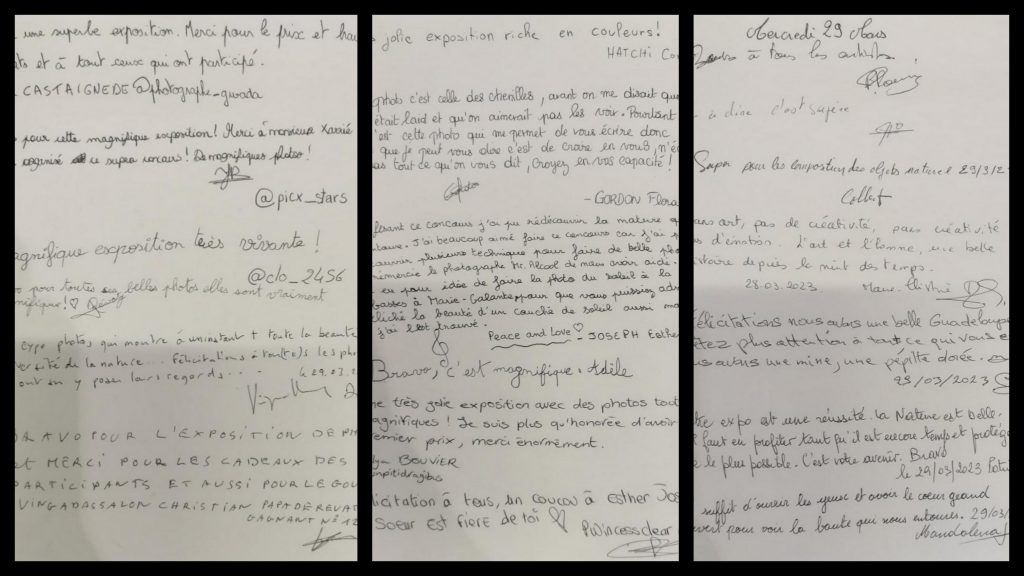 une superbe exposition. Merci pour le prix et
et à tout ceux qui ont participé.
CASTAIGNEDE @photographe_gwada
pour cette magnifique exposition! Merci à monsieur
organisé ce supra concours! De magnifiques photos!
@picx_stars
magnifique exposition très vivante!
@clo_2456
pour toutes ces belles photos elles sont vraiment
magnifique!♡
expo photos, qui montre à un instant t toute la beauté
de la nature... Félicitations à tou(te)s les
ont su y poser leurs regards...
29.03.2
BRAVO POUR L'EXPOSITION DE
et MERCI POUR LES CADEAUX DES
PARTICIPANTS ET AUSSI POUR LE
CHRISTIAN
GAGNANT N° 12
jolie exposition riche en couleurs!
HATCHI
photo c'est celle des chenilles, avant on me disait que
était laid et qu'on aimerait pas les voir. Pourtant
c'est cette photo qui me permet de vous écrire donc
que je peut vous dire c'est de croire en vous, n'é
pas tout ce qu'on vous dit, croyez en vos capacité!
- GORDON Flora
faisant ce concours j'ai pu redécouvrir la nature
J'ai beaucoup aimé faire ce concours car j'ai
plusieurs technique pour faire de belle
remercie le photographe Mr. Alcool de nous avoir aidé.
eu pour idée de faire la photo du soleil à la
à Marie-Galante pour que vous puissiez
cliché la beauté d'un couché de soleil aussi
j'ai trouvé.
Peace and Love♡ - JOSEPH Esther
Bravo, c'est magnifique. Adèle
une très jolie exposition avec des photos tout
magnifiques! Je suis plus qu'honorée d'avoir
premier prix, merci énormément.
BOUVIER
Félicitation à tous, un coucou à Esther Jos
Soeur est fière de toi ♡
Princessclear
Mercredi 29 Mars
Bravo à tous les artistes
à dire c'est supère
Super pour les composition des objets naturel 29/3/2
Colbert
sans art, pas de créativité, pas créativité
pas d'émotion. L'art et l'homme, une belle
histoire depuis la nuit des temps.
28.03.2023.
Félicitations nous avons une belle Guadeloupe
plus attention à tout ce qui vous
nous avons une mine, une pépitte dorée.
29/03/2023
Votre expo est une réussite. La Nature est belle.
Il faut en profiter tant qu'il est encore temps et protége
le plus possible. C'est votre avenir. Bravo
le 29/03/2023
suffit d'ouvrir les yeux et avoir le coeur grand
ouvert pour voir la beauté qui nous entoures. 29/03/